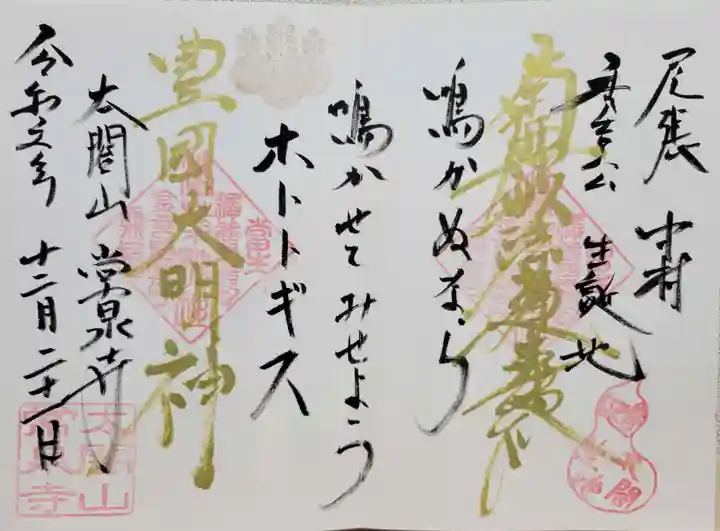 尾張 中村
秀吉公 生誕地
南無妙法蓮華経
鳴かぬなら
鳴かせてみせよう
ホトトギス
豊國大明神
太閤山 常泉寺
令和五年 十二月二十一日
太閤山
常泉寺